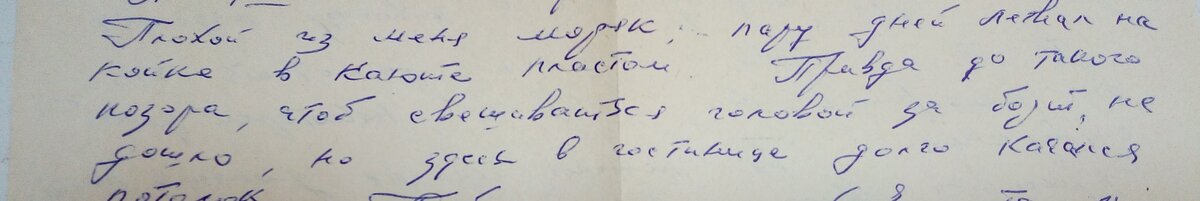 Плохой из меня моряк, пару дней лежал на
койке в каюте пластом. Правда до такого
позора, чтоб свешиваться головой за борт, не
дошло, но здесь в гостинице долго качался
потолок